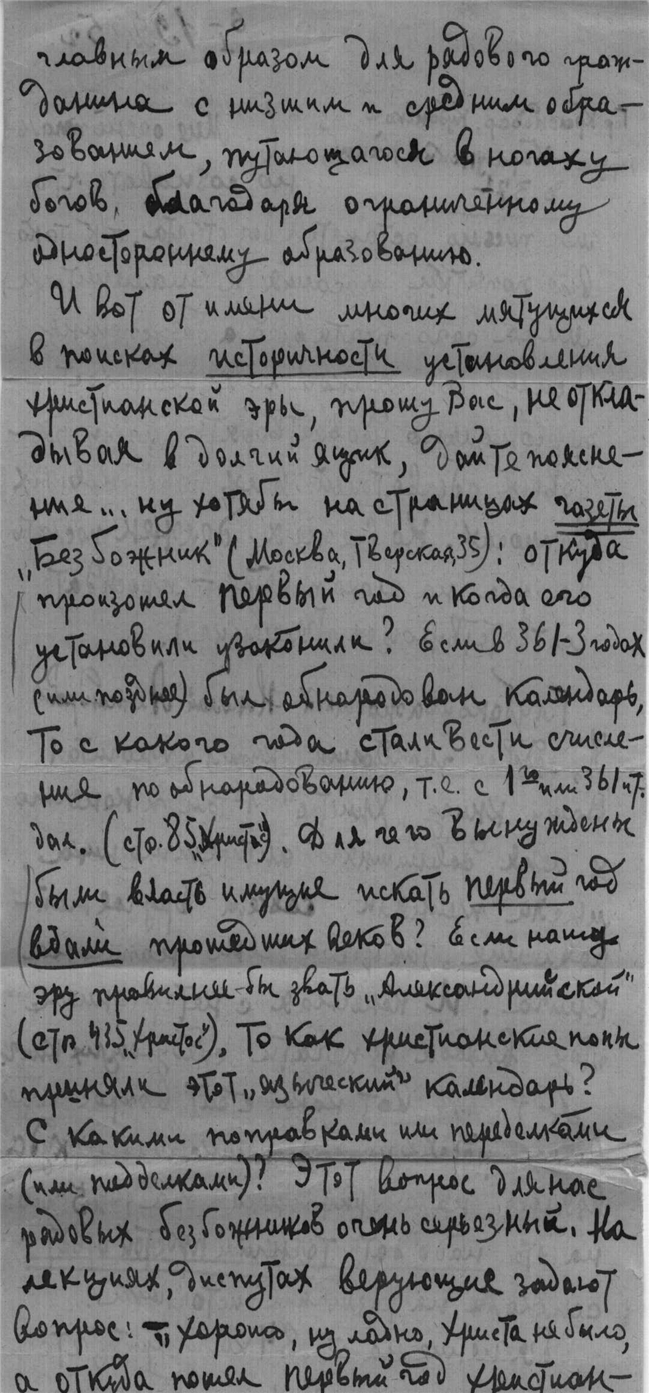 главным образом для рядового граж-
данина с низшим и средним обра-
зованием, путающагося в ногах у
богов, благодаря ограниченному
одностороннему образованию.
И вот от имени многих мятущихся
в поисках историчности установления
христианской эры, прошу Вас, не откла-
дывая в долгий ящик, дайте поясне-
ние... ну хотябы на страницах газеты
„Безбожник" (Москва, Тверская, 35): откуда
произошел первый год и когда его
установили узаконили? Если в 361-3 годах
(или позднее) был обнародован календарь,
то с какого года стали вести счисле-
ние по обнародованию, т.е. с 1го или 361 и т.
дал. (стр. 85 „Христос"). Для чего вынуждены
были власть имущие искать первый год
вдали прошедших веков? Если нашу
эру правильнее-бы звать „Александрийской"
(стр. 435 „Христос"), то как христианские попы
приняли этот „языческий" календарь?
С какими поправками или переделками
(или подделками)? Этот вопрос для нас
рядовых безбожников очень серьезный. На
лекциях, диспутах верующие задают
вопрос: – „хорошо, ну ладно, Христа не было,
а откуда пошел первый год христиан-